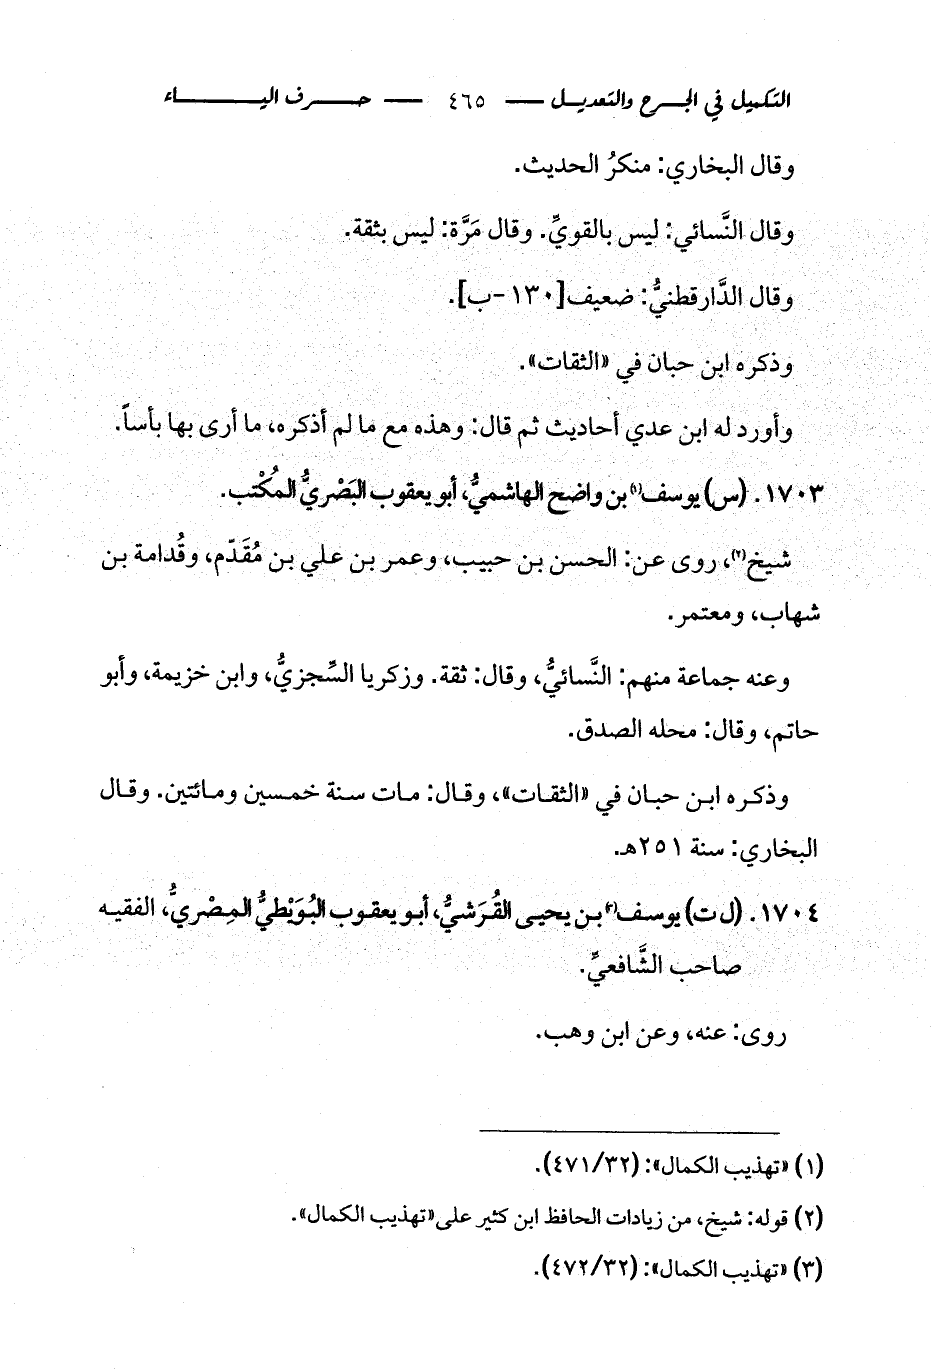 التكميل في الجرح والتعديل — ٤٦٥ — حرف الياء
وقال البخاري: منكرُ الحديث.
وقال النَّسائي: ليس بالقويِّ. وقال مَرَّة: ليس بثقة.
وقال الدَّارقطنيُّ: ضعيف[١٣٠-ب].
وذكره ابن حبان في «الثقات».
وأورد له ابن عدي أحاديث ثم قال: وهذه مع ما لم أذكره، ما أرى بها بأساً.
١٧٠٣. (س) يوسف(١) بن واضح الهاشميُّ، أبو يعقوب البَصْريُّ المُكْتب.
شيخ(٢)، روى عن: الحسن بن حبيب، وعمر بن علي بن مُقَدّم، وقُدامة بن
شهاب، ومعتمر.
وعنه جماعة منهم: النَّسائيُّ، وقال: ثقة. وزكريا السِّجزيُّ، وابن خزيمة، وأبو
حاتم، وقال: محله الصدق.
وذكره ابن حبان في «الثقات»، وقال: مات سنة خمسين ومائتين. وقال
البخاري: سنة ٢٥١هـ.
١٧٠٤. (ل ت) يوسف(٣) بن يحيى القُرَشيُّ، أبو يعقوب البُوَيْطيُّ المِصْريُّ، الفقيه
صاحب الشَّافعيِّ.
روى: عنه، وعن ابن وهب.
(١) «تهذيب الكمال»: (٤٧١/٣٢).
(٢) قوله: شيخ، من زيادات الحافظ ابن كثير على«تهذيب الكمال».
(٣) «تهذيب الكمال»: (٤٧٢/٣٢).